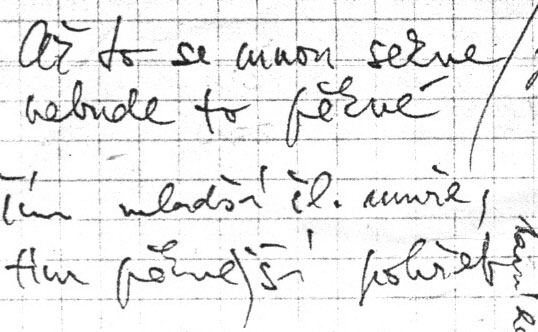 Až to se mnou sekne
nebude to pěkné
Čím mladší čl. umře,
tím pěknější pohřeb